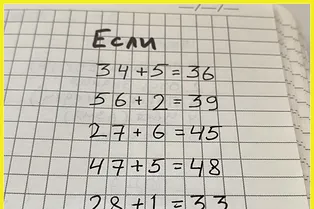 Если
34+5=36
56+2=39
27+6=45
47+5=48
28+1=33